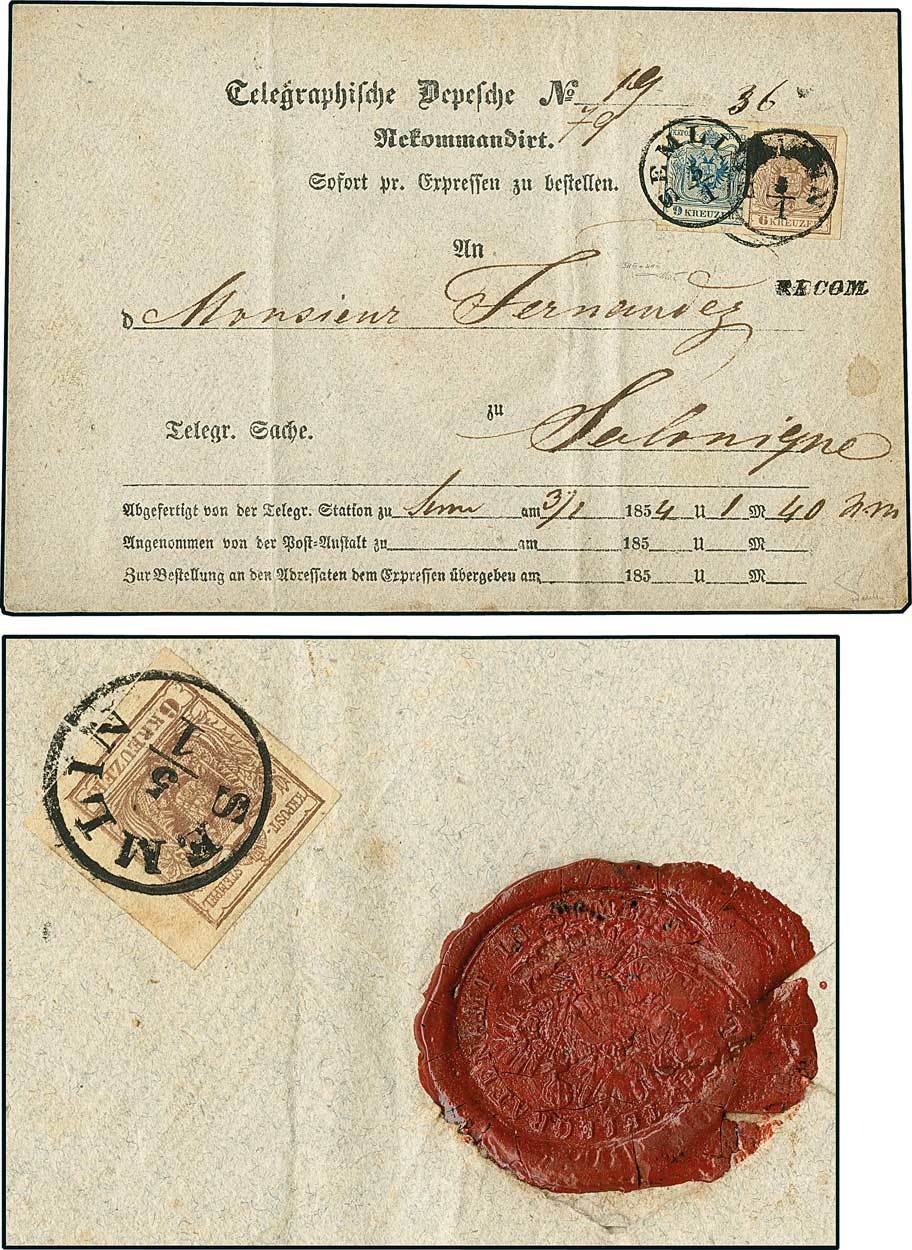 Telegraphische Depesche No 19
79
36
Rekommandirt.
Sofort pr. Expressen zu bestellen.
SEMLIN
5/1
9 KREUZER
6 KREUZER
An
RECOM.
Monsieur Fernandez
zu
Telegr. Sache.
Salonique
Abgefertigt von der Telegr. Station zu am 3/1 1854 U 1 M 40
Angenommen von der Post-Anstalt zu am 185 U M
Zur Bestellung an den Adressaten dem Expressen übergeben am 185 U M
SEMLIN
5/1
6 KREUZER
KK POST-
STEMPEL